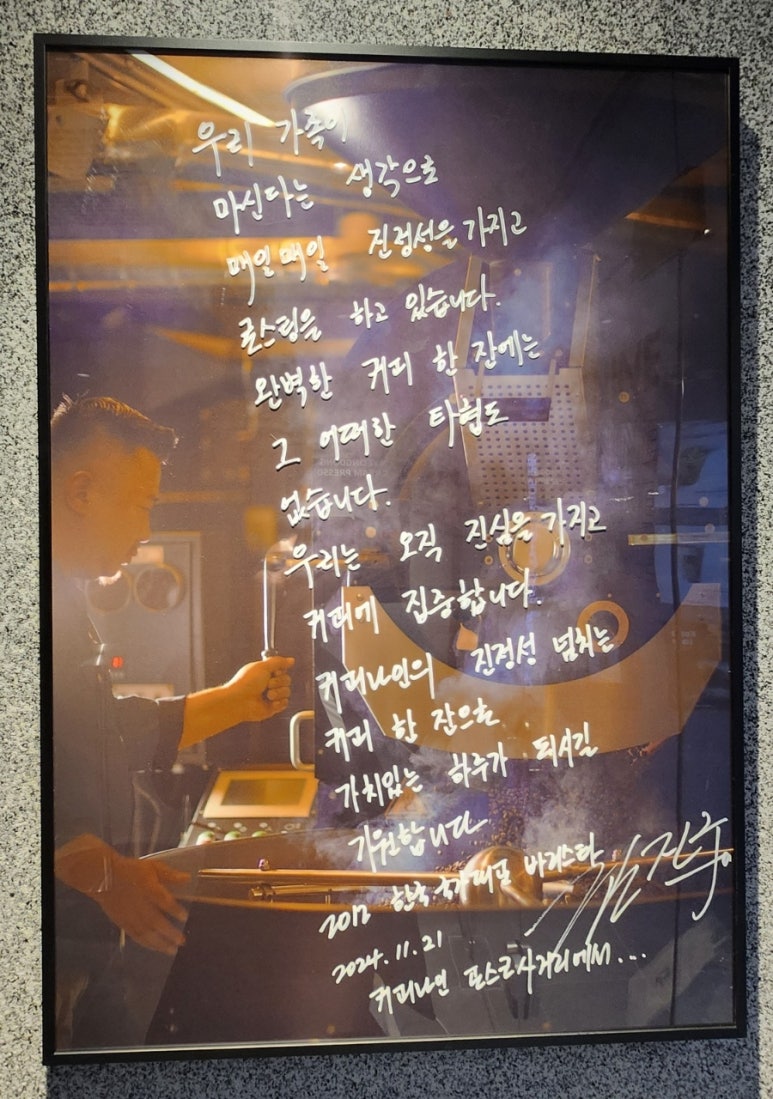 우리 가족이
마신다는 생각으로
매일매일 진정성을 가지고
로스팅을 하고 있습니다.
완벽한 커피 한 잔에는
그 어떠한 타협도
없습니다.
우리는 오직 진심을 가지고
커피에 집중합니다.
커피나인의 진정성 넘치는
커피 한 잔으로
가치있는 하루가 되시길
기원합니다
2012 한국 국가대표 바리스타
2024.11.21
커피나인 포스코사거리에서...